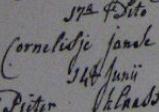 17de Dito
Cornelisje Jansse
14de Junii
Pieter Klaass